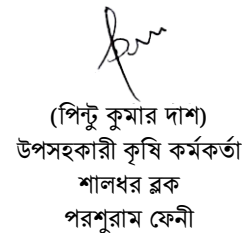 (পিন্টু কুমার দাশ)
উপসহকারী কৃষি কর্মকর্তা
শালধর ব্লক
পরশুরাম ফেনী